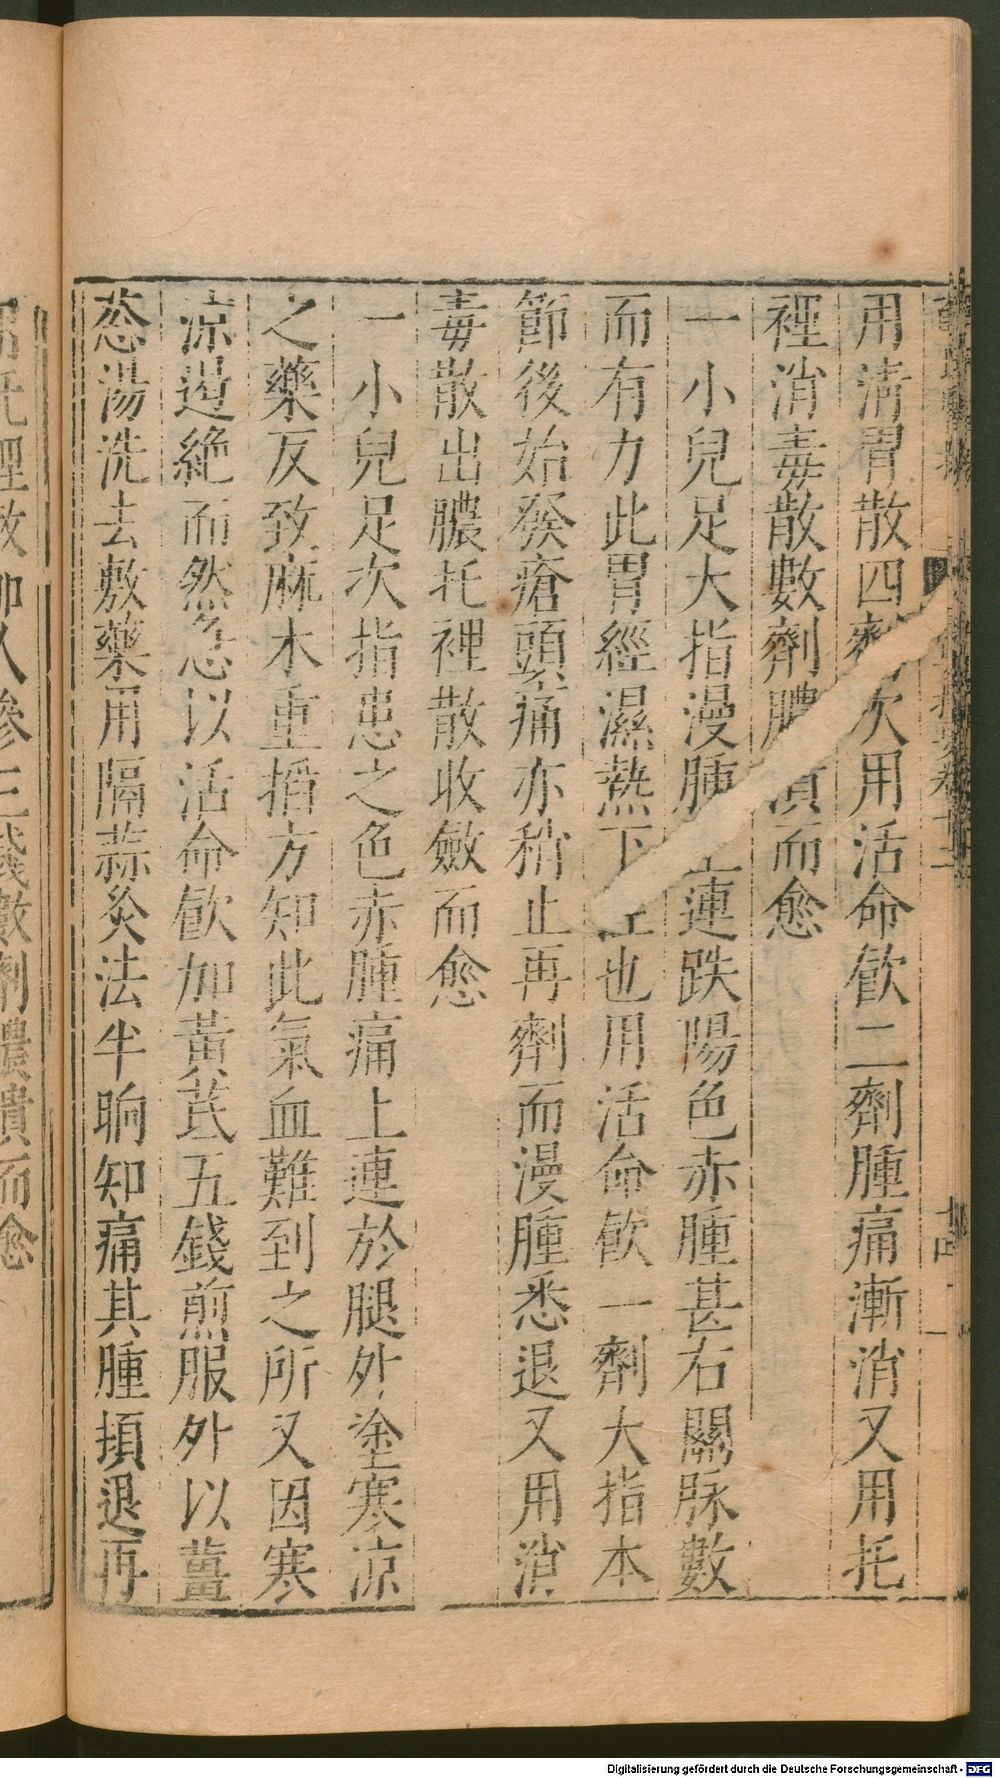 用清胃散四劑次用活命飲二劑腫痛漸消又用托
裡消毒散數劑膿潰而愈
一小兒足大指漫腫上連趺陽色赤腫甚右關脉數
而有力此胃經濕熱下注也用活命飲一劑大指本
節後始發瘡頭痛亦稍止再劑而漫腫悉退又用消
毒散出膿托裡散收斂而愈
一小兒足次指患之色赤腫痛上連於腿外塗寒凉
之藥反致麻木重搯方知此氣血難到之所又因寒
凉遏絶而然急以活命飲加黃芪五錢煎服外以薑
葱湯洗去敷藥用隔蒜灸法半晌知痛其腫頓退再
托裡散加人參三錢數劑膿潰而愈
Digitalisierung gefördert durch die Deutsche Forschungsgemeinschaft - DFG